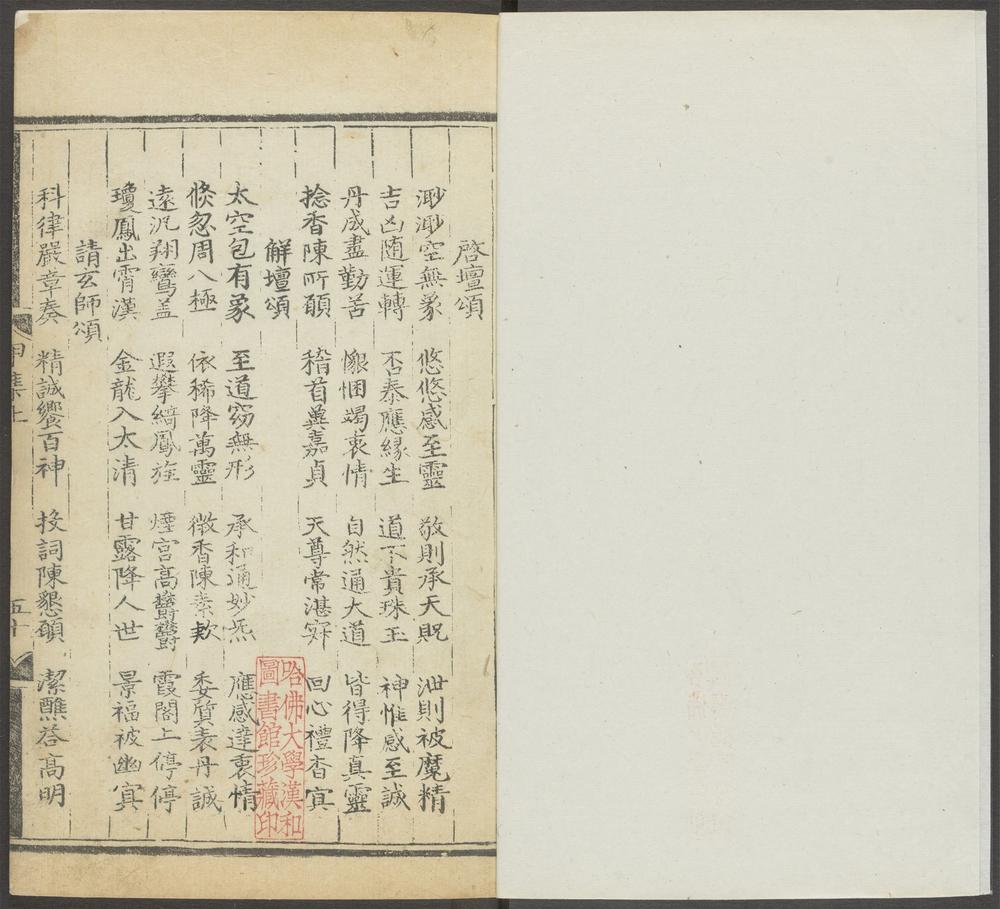 啓壇頌
渺渺空無象　悠悠感至靈　敬則承天貺　泄則被魔精
吉凶随運轉　否泰應緣生　道不貴珠玉　神惟感至誠
丹成盡勤苦　懇悃竭衷情　自然通大道　皆得降真靈
捻香陳所願　稽首兾嘉貞　天尊常湛寂　回心禮杳冥
解壇頌
太空包有象　至道窈無形　承和通妙炁　應感達衷情
倐忽周八極　依稀降萬靈　㣲香陳素欵　委質表丹誠
遠汎翔鸞盖　遐攀綺鳳旌　煙宫高欝欝　霞閣上停停
瓊鳳出霄漢　金龍入太清　甘露降人世　景福被幽冥
請玄師頌
科律嚴章奏　精誠饗百神　投詞陳懇願　潔醮荅高明
甲集上
五十
哈佛大學漢和
圖書館珍藏印